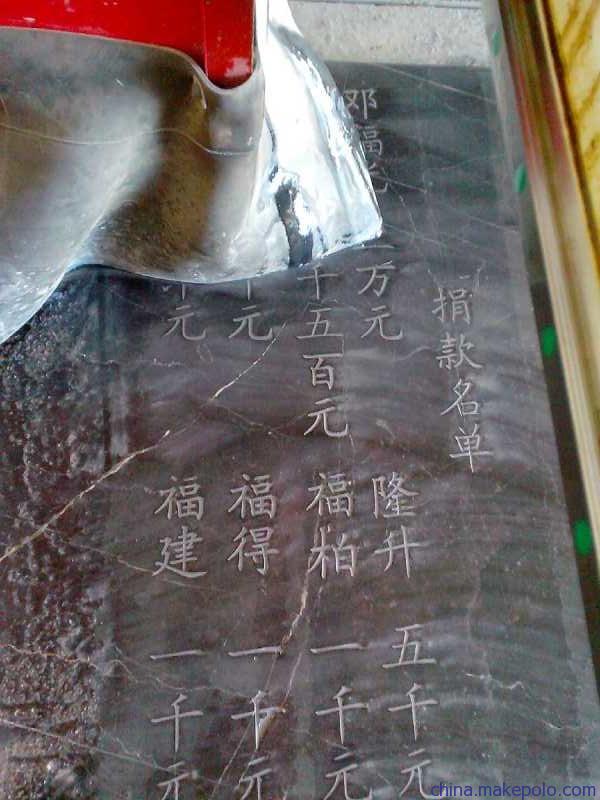 捐款名单
邓福 万元 隆升 五千元
千五百元 福柏 一千元
千元 福得 一千元
千元 福建 一千元
china.makepolo.com